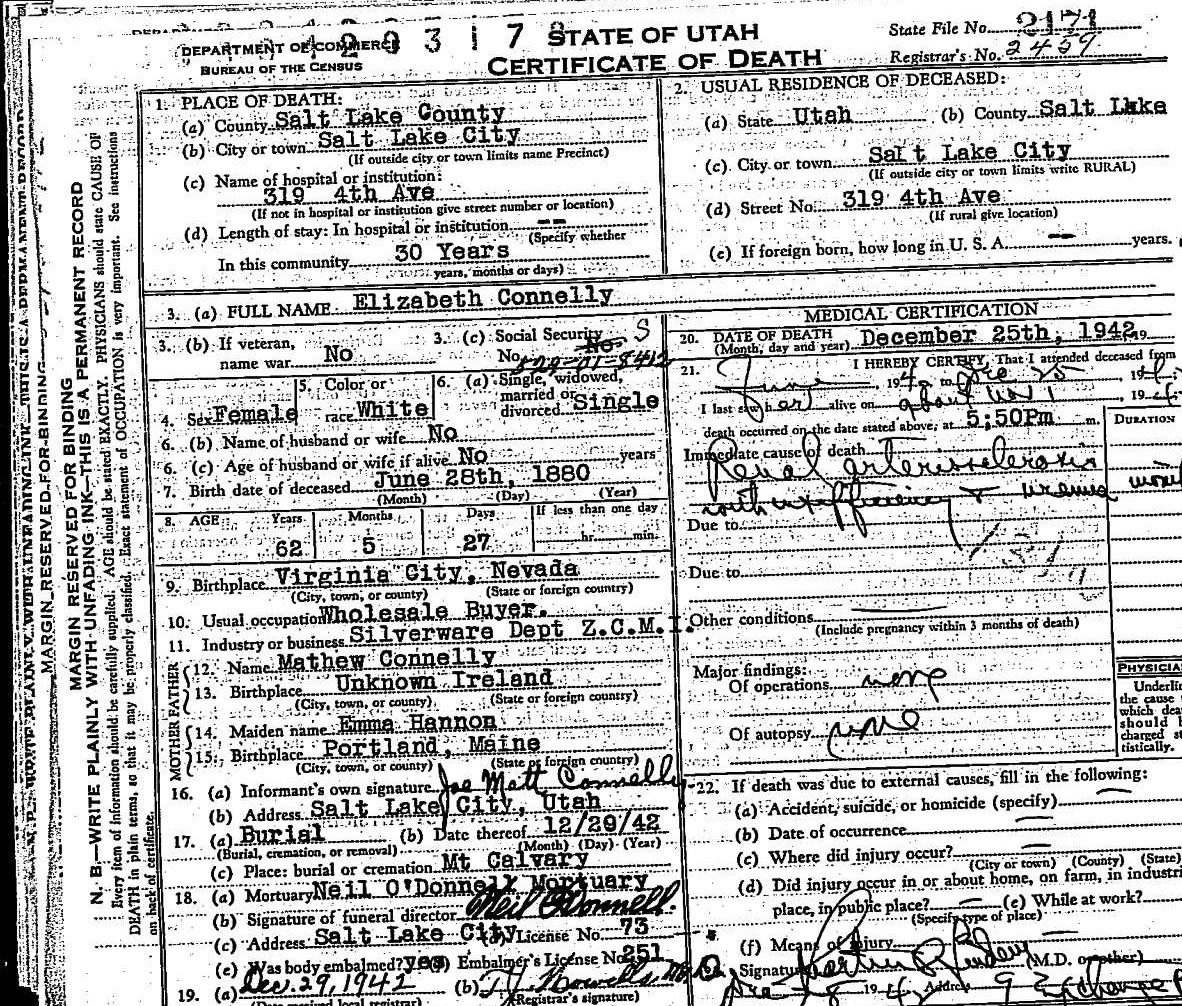 DEPARTMENT OF COMMERCE
BUREAU OF THE CENSUS
STATE OF UTAH
CERTIFICATE OF DEATH
State File No. 2171
Registrar's No. 2459
MARGIN RESERVED FOR BINDING
N. B.—WRITE PLAINLY WITH UNFADING INK—THIS IS A PERMANENT RECORD
Every item of information should be carefully supplied. AGE should be stated EXACTLY. PHYSICIANS should state CAUSE OF
DEATH in plain terms, so that it may be properly classified. Exact statement of OCCUPATION is very important. See instructions
on back of certificate.
1. PLACE OF DEATH:
(a) County Salt Lake County
(b) City or town Salt Lake City
(If outside city or town limits name Precinct)
(c) Name of hospital or institution:
319 4th Ave
(If not in hospital or institution give street number or location)
(d) Length of stay: In hospital or institution --
(Specify whether
In this community 30 Years
years, months or days)
2. USUAL RESIDENCE OF DECEASED:
(a) State Utah (b) County Salt Lake
(c) City or town Salt Lake City
(If outside city or town limits write RURAL)
(d) Street No. 319 4th Ave
(If rural give location)
(e) If foreign born, how long in U. S. A. -- years.
3. (a) FULL NAME Elizabeth Connelly
3. (b) If veteran,
name war No
3. (c) Social Security S
No. 529-01-8412
4. Sex Female
5. Color or
race White
6. (a) Single, widowed,
married or
divorced Single
6. (b) Name of husband or wife No
6. (c) Age of husband or wife if alive No years
7. Birth date of deceased June 28th, 1880
(Month) (Day) (Year)
8. AGE Years Months Days If less than one day
62 5 27 hr. min.
9. Birthplace Virginia City, Nevada
(City, town, or county) (State or foreign country)
10. Usual occupation Wholesale Buyer.
11. Industry or business Silverware Dept Z.C.M.I.
FATHER
12. Name Mathew Connelly
13. Birthplace Unknown Ireland
(City, town, or county) (State or foreign country)
MOTHER
14. Maiden name Emma Hannon
15. Birthplace Portland, Maine
(City, town, or county) (State or foreign country)
16. (a) Informant's own signature Joe Matt Connelly
(b) Address Salt Lake City, Utah
17. (a) Burial (b) Date thereof 12/29/42
(Burial, cremation, or removal) (Month) (Day) (Year)
(c) Place: burial or cremation Mt Calvary
18. (a) Mortuary Neil O'Donnell Mortuary
(b) Signature of funeral director Neil O'Donnell.
(c) Address Salt Lake City (d) License No. 73
(e) Was body embalmed? yes (f) Embalmer's License No. 251
19. (a) Dec. 29, 1942 (b)
(Date received local registrar) Registrar's signature)
MEDICAL CERTIFICATION
20. DATE OF DEATH December 25th, 1942 19
(Month, day and year)
21. I HEREBY CERTIFY, That I attended deceased from
June 1942 to Dec 25 194
I last saw her alive on about Nov 1 194
death occurred on the date stated above, at 5;50Pm m.
DURATION
Immediate cause of death
Renal arteriosclerosis
with insufficiency & uremia
Due to
Due to
Other conditions
(Include pregnancy within 3 months of death)
Major findings:
Of operations none
Of autopsy none
PHYSICIA
Underli
the cause
which dea
should b
charged st
tistically.
22. If death was due to external causes, fill in the following:
(a) Accident, suicide, or homicide (specify)
(b) Date of occurrence
(c) Where did injury occur?
(City or town) (County) (State)
(d) Did injury occur in or about home, on farm, in industri
place, in public place? (e) While at work?
(Specify type of place)
(f) Means of Injury
Signature (M.D. or other)
Address 9 Exchange